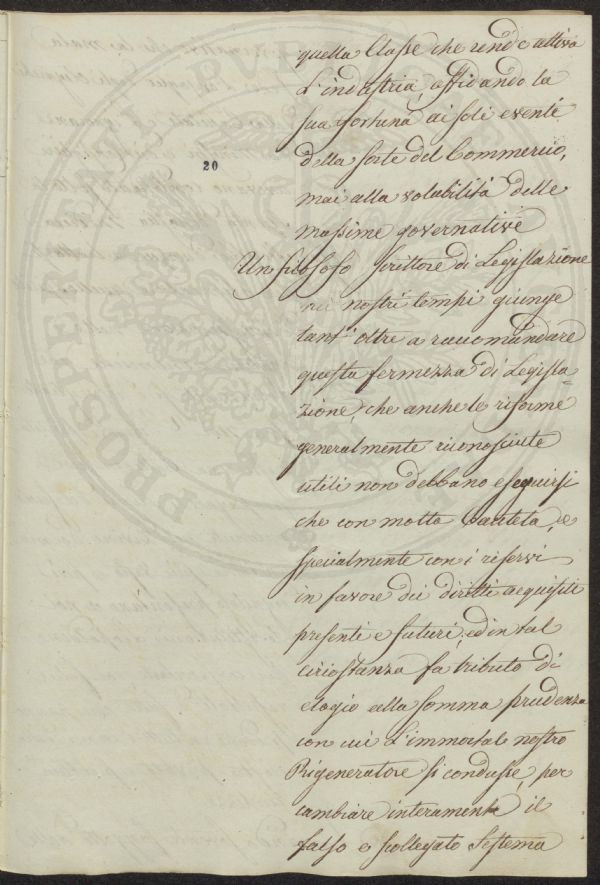 quella Classe che rende attiva
l'industria, affidando la
sua fortuna ai soli eventi
della sorte del Commercio,
20
mai alla volubilità delle
massime governative
Un filosofo scrittore di Legislazione
ne' nostri tempi giunge
tant' oltre a raccomandare
questa fermezza di Legisla=
zione, che anche le riforme
generalmente riconosciute
utili non debbano eseguirsi
che con molta Cautela, e
specialmente con i riservi
in favore dei diritti acquisiti
presenti e futuri, ed in tal
circostanza fa tributo di
elogio alla somma prudenza
con cui l'immortal nostro
Rigeneratore si condusse, per
cambiare interamente il
falso e scollegato Sistema